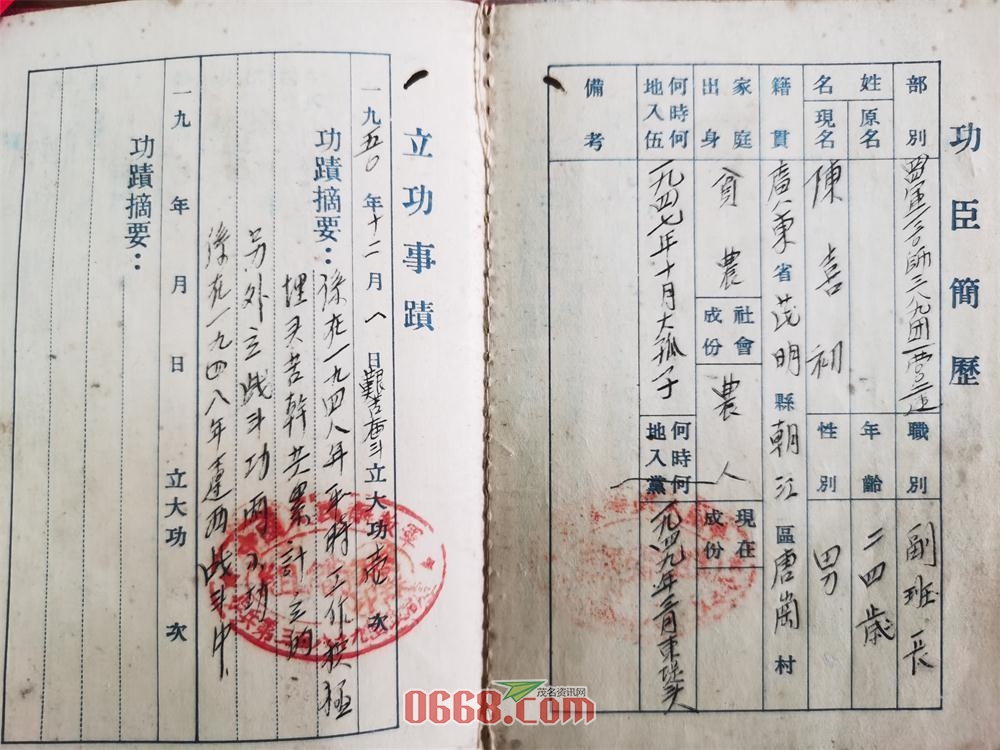 功臣簡歷
部別 四軍 師三八九団一营二連 職別 副班長
姓名 原名 年齡 二四歲
現名 陳喜初 性別 男
籍貫 廣東省茂明縣朝江區唐崗村
家庭出身 貧農 社會成份 農人 現在成份
何時何地入伍 一九四七年十月大孤子 何時何地入黨 一九四九年 月東
備考
立功事蹟
一九五〇年十二月八日艱苦奋斗立大功壱次
功蹟摘要：係在一九四八年平時工作積極
埋头苦幹共累計立的
另外立战斗功两小功
係在一九四八年遼西战斗中
一九 年 月 日 立大功 次
功蹟摘要：
茂名资讯网
0668.com